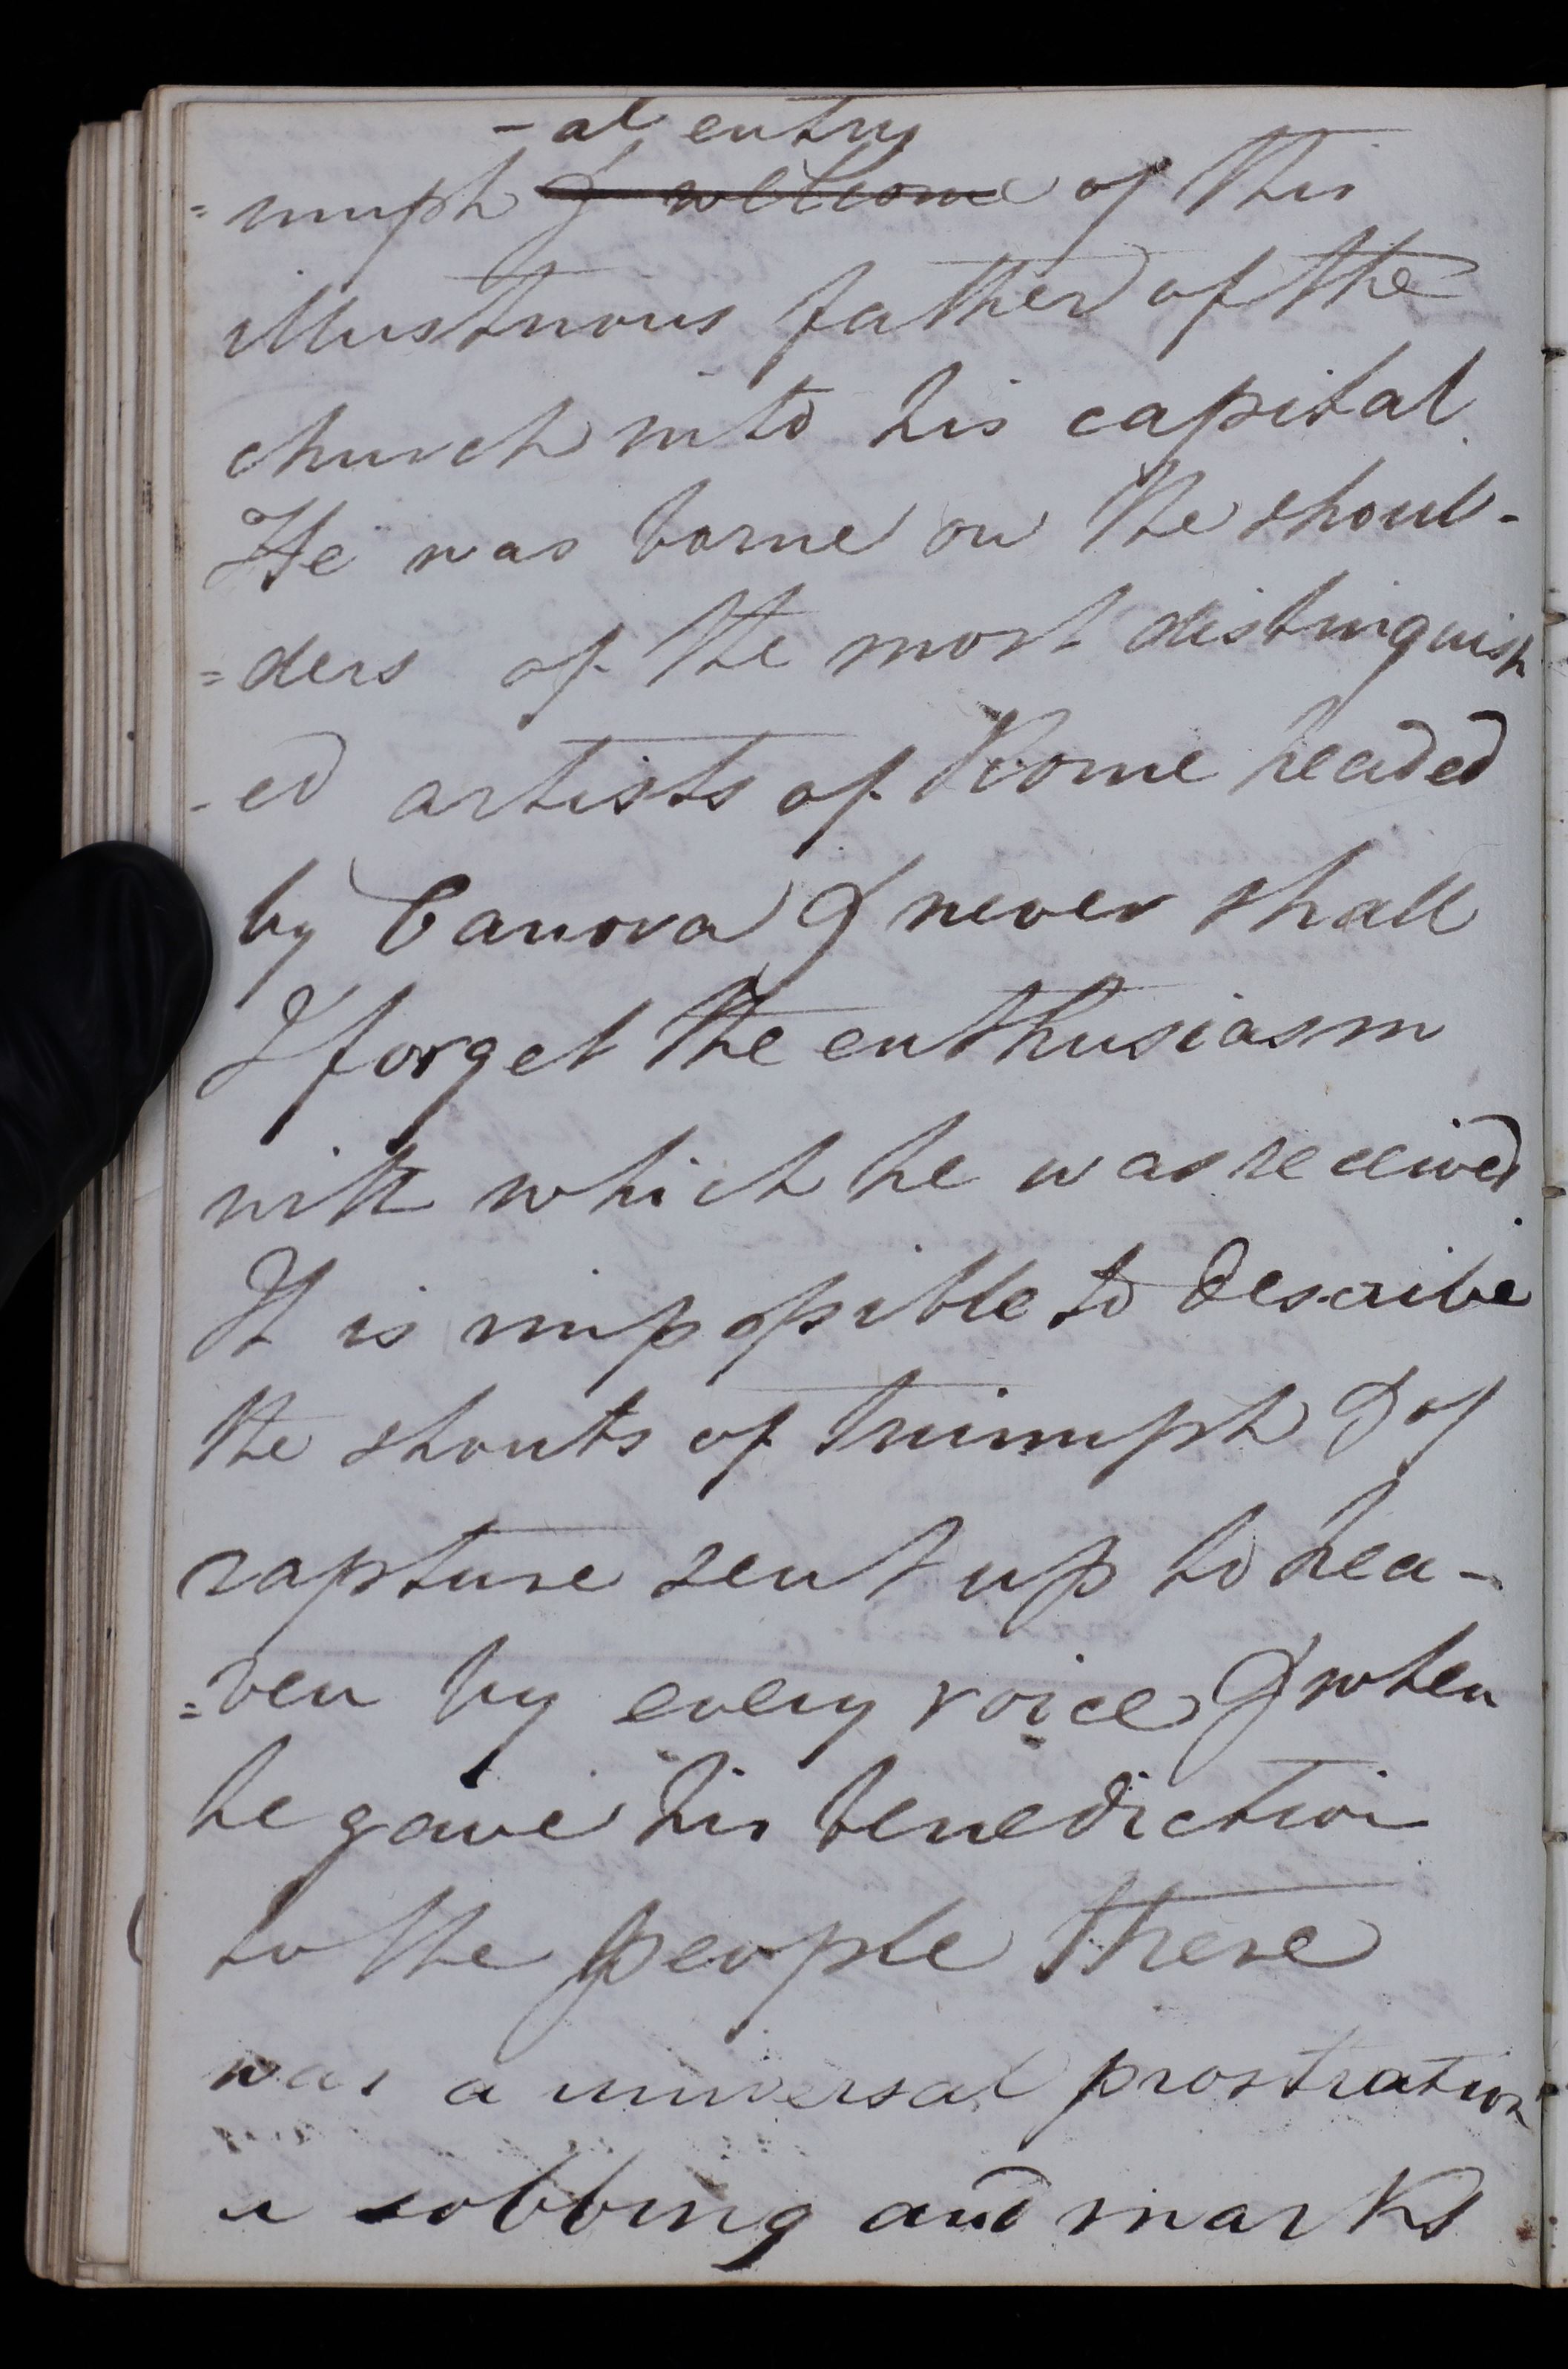 -al entry
=umph & welcome of this
illustrious father of the
church into his capital.
He was borne on the shoul-
=ders of the most distinguish
-ed artists of Rome headed
by Canova & never shall
I forget the enthusiasm
with which he was received.
It is impossible to describe
the shouts of triumph & of
rapture sent up to hea-
=ven by every voice & when
he gave his benediction
to the people there
was a universal prostration
a sobbing and marks